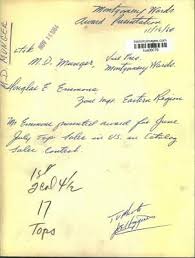 Montgomery Wards
Award Presentation
11/12/60
NOV 21 1960
L to R
M.D. Munger, Vice Pres.
Montgomery Wards.
Douglas E. Emmons
Zone Mgr. Eastern Region
Mr Emmons presented award for June
July Top Sales in U.S. in Catalog
Sales Contest.
1st
2 col 4 1/2
17
Tops
M.D. MUNGER